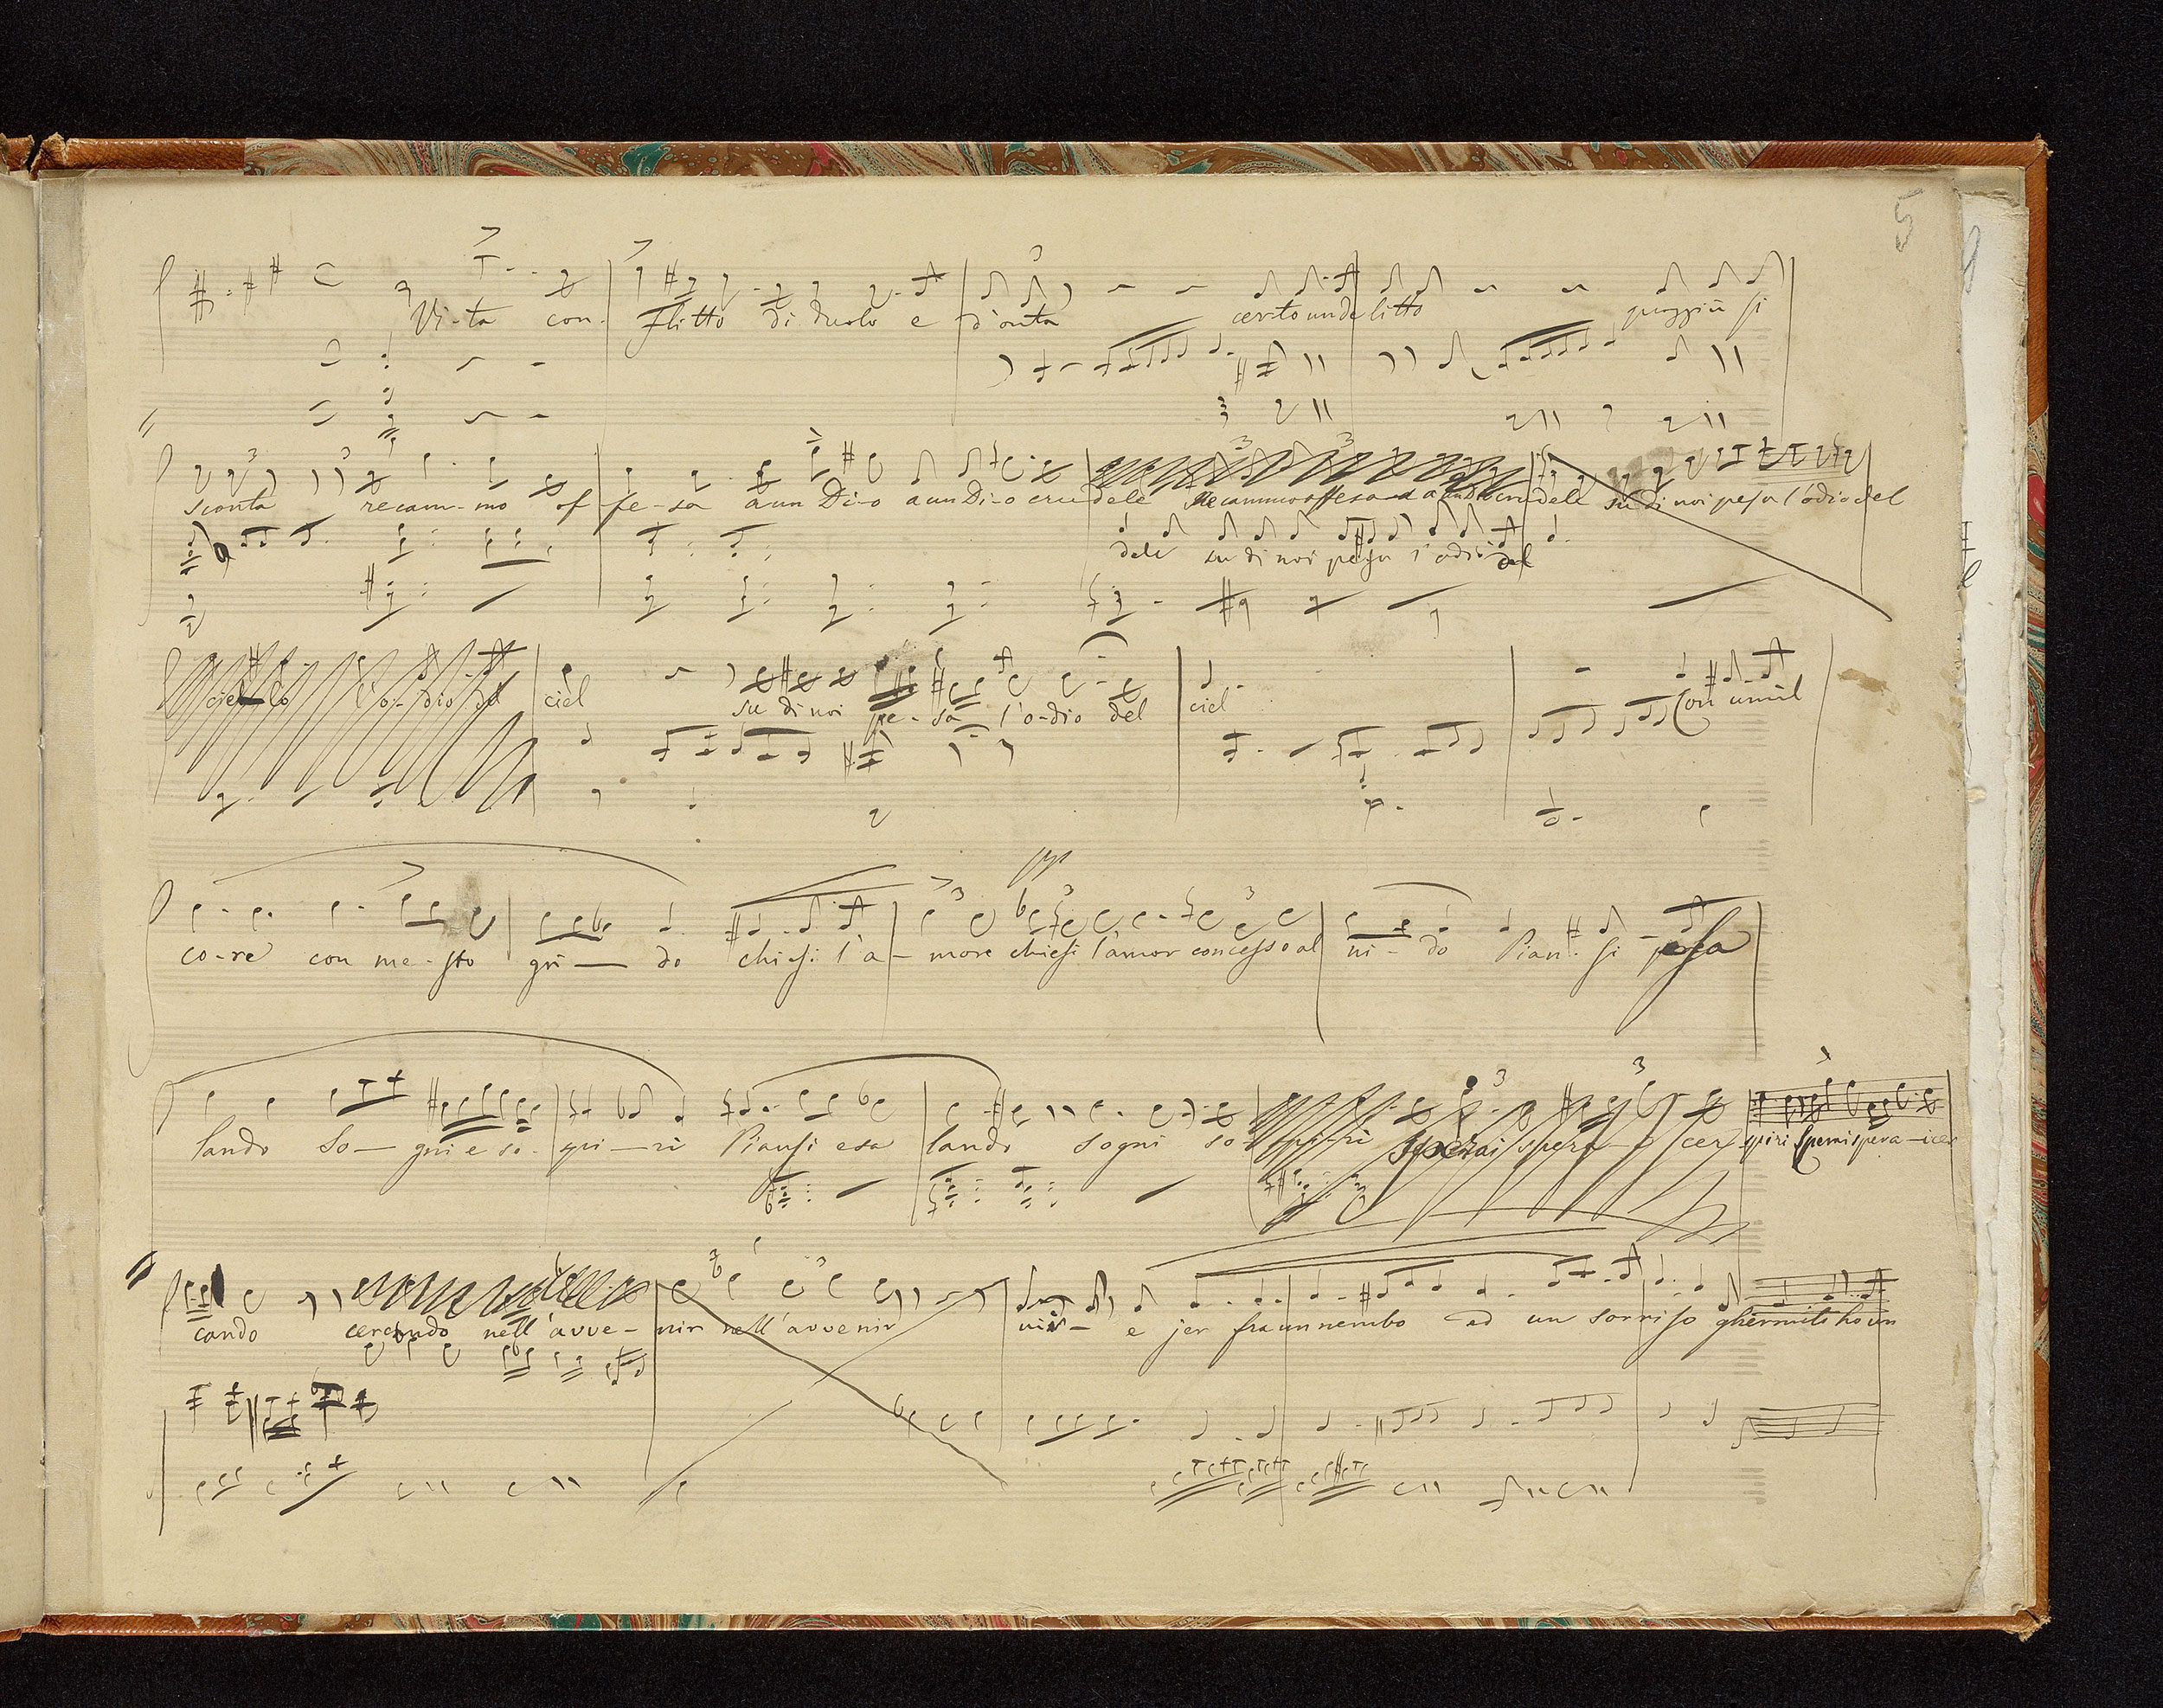 5
Vi-ta con-flitto di duolo e d'onta certo un delitto quaggiù si
sconta recam-mo of fe-sa a un Di-o a un Di-o cru dele Recammo offesa a un Dio crudele su di noi pesa l'odio del
dele su di noi pesa l'odio del
cielo l'o-dio del ciel su di noi pe-sa l'o-dio del ciel Con umil
pp
co-re con me-sto gri-do chiesi l'a-more chiesi l'amor concesso al ni-do Pian-si esa
lando So-gni e so-spi-ri Piansi esa lando sogni so spi-ri sperai spera cer spiri sperai spera-i cer
cando cercando nell'avve-nir nell'avvenir nir- e jer fra un nembo ed un sorriso ghermito ho un